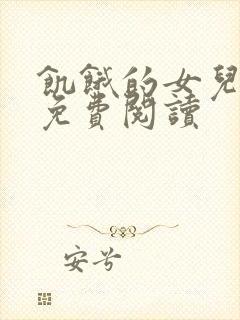 飢餓的女兒
免費閱讀
安兮